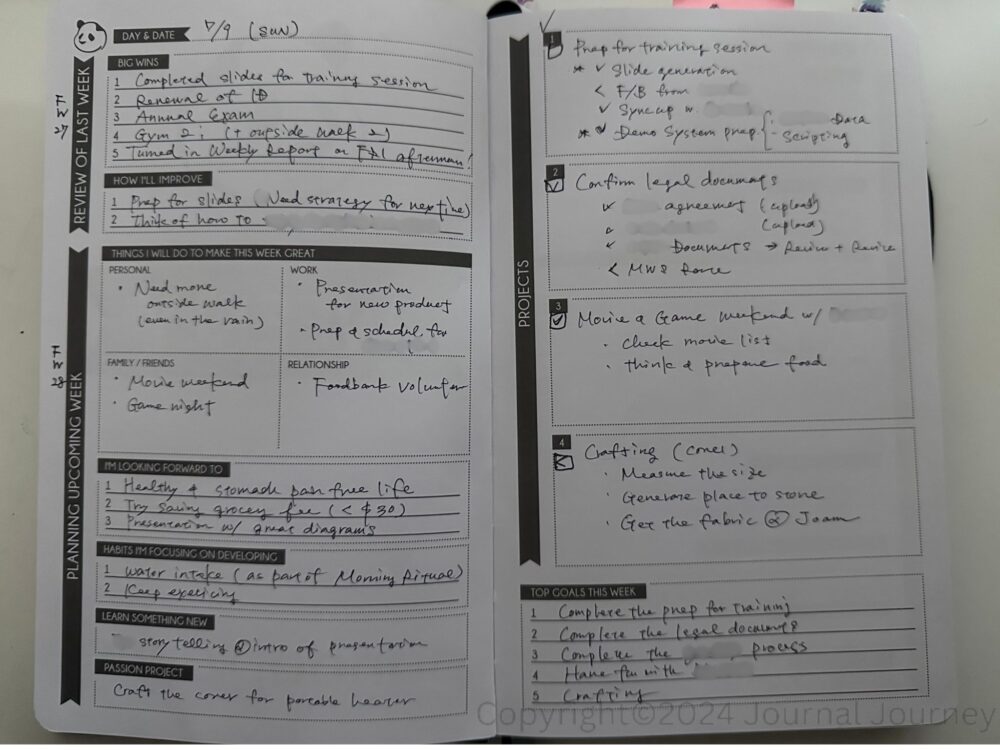 DAY & DATE 7/9 (SUN)
REVIEW OF LAST WEEK
FW 27
BIG WINS
1 Completed slides for training session
2 Renewal of ID
3 Annual Exam
4 Gym 2; (+ outside walk 2)
5 Turned in Weekly Report on FRI afternoon!
HOW I'LL IMPROVE
1 Prep for slides (Need strategy for next time)
2 Think of how to
PLANNING UPCOMING WEEK
FW 28
THINGS I WILL DO TO MAKE THIS WEEK GREAT
PERSONAL
• Need more
outside walk
(even in the rain)
WORK
• Presentation
for new product
• Prep & schedule for
FAMILY / FRIENDS
• Movie weekend
• Game night
RELATIONSHIP
• Foodbank volunteer
I'M LOOKING FORWARD TO
1 Healthy & stomach pain free life
2 Try saving grocery fee (< $30)
3 Presentation w/ great diagrams
HABITS I'M FOCUSING ON DEVELOPING
1 Water intake (as part of Morning Ritual)
2 Keep exercising
LEARN SOMETHING NEW
story telling @ intro of presentation
PASSION PROJECT
Craft the cover for portable heater
PROJECTS
1 Prep for training session
* ✓ Slide generation
< F/B from
✓ Sync up w.
* ✓ Demo System prep { - Data
- Scripting
2 Confirm legal documents
✓ agreement (upload)
(upload)
Documents → Review + Revise
< MWS
3 Movie & Game weekend w/
• check movie list
• think & prepare food
4 Crafting (cover)
• Measure the size
• Generate place to store
• Get the fabric @ Joann
TOP GOALS THIS WEEK
1 Complete the prep for training
2 Complete the legal documents
3 Complete the process
4 Have fun with
5 Crafting
Copyright©2024 Journal Journey